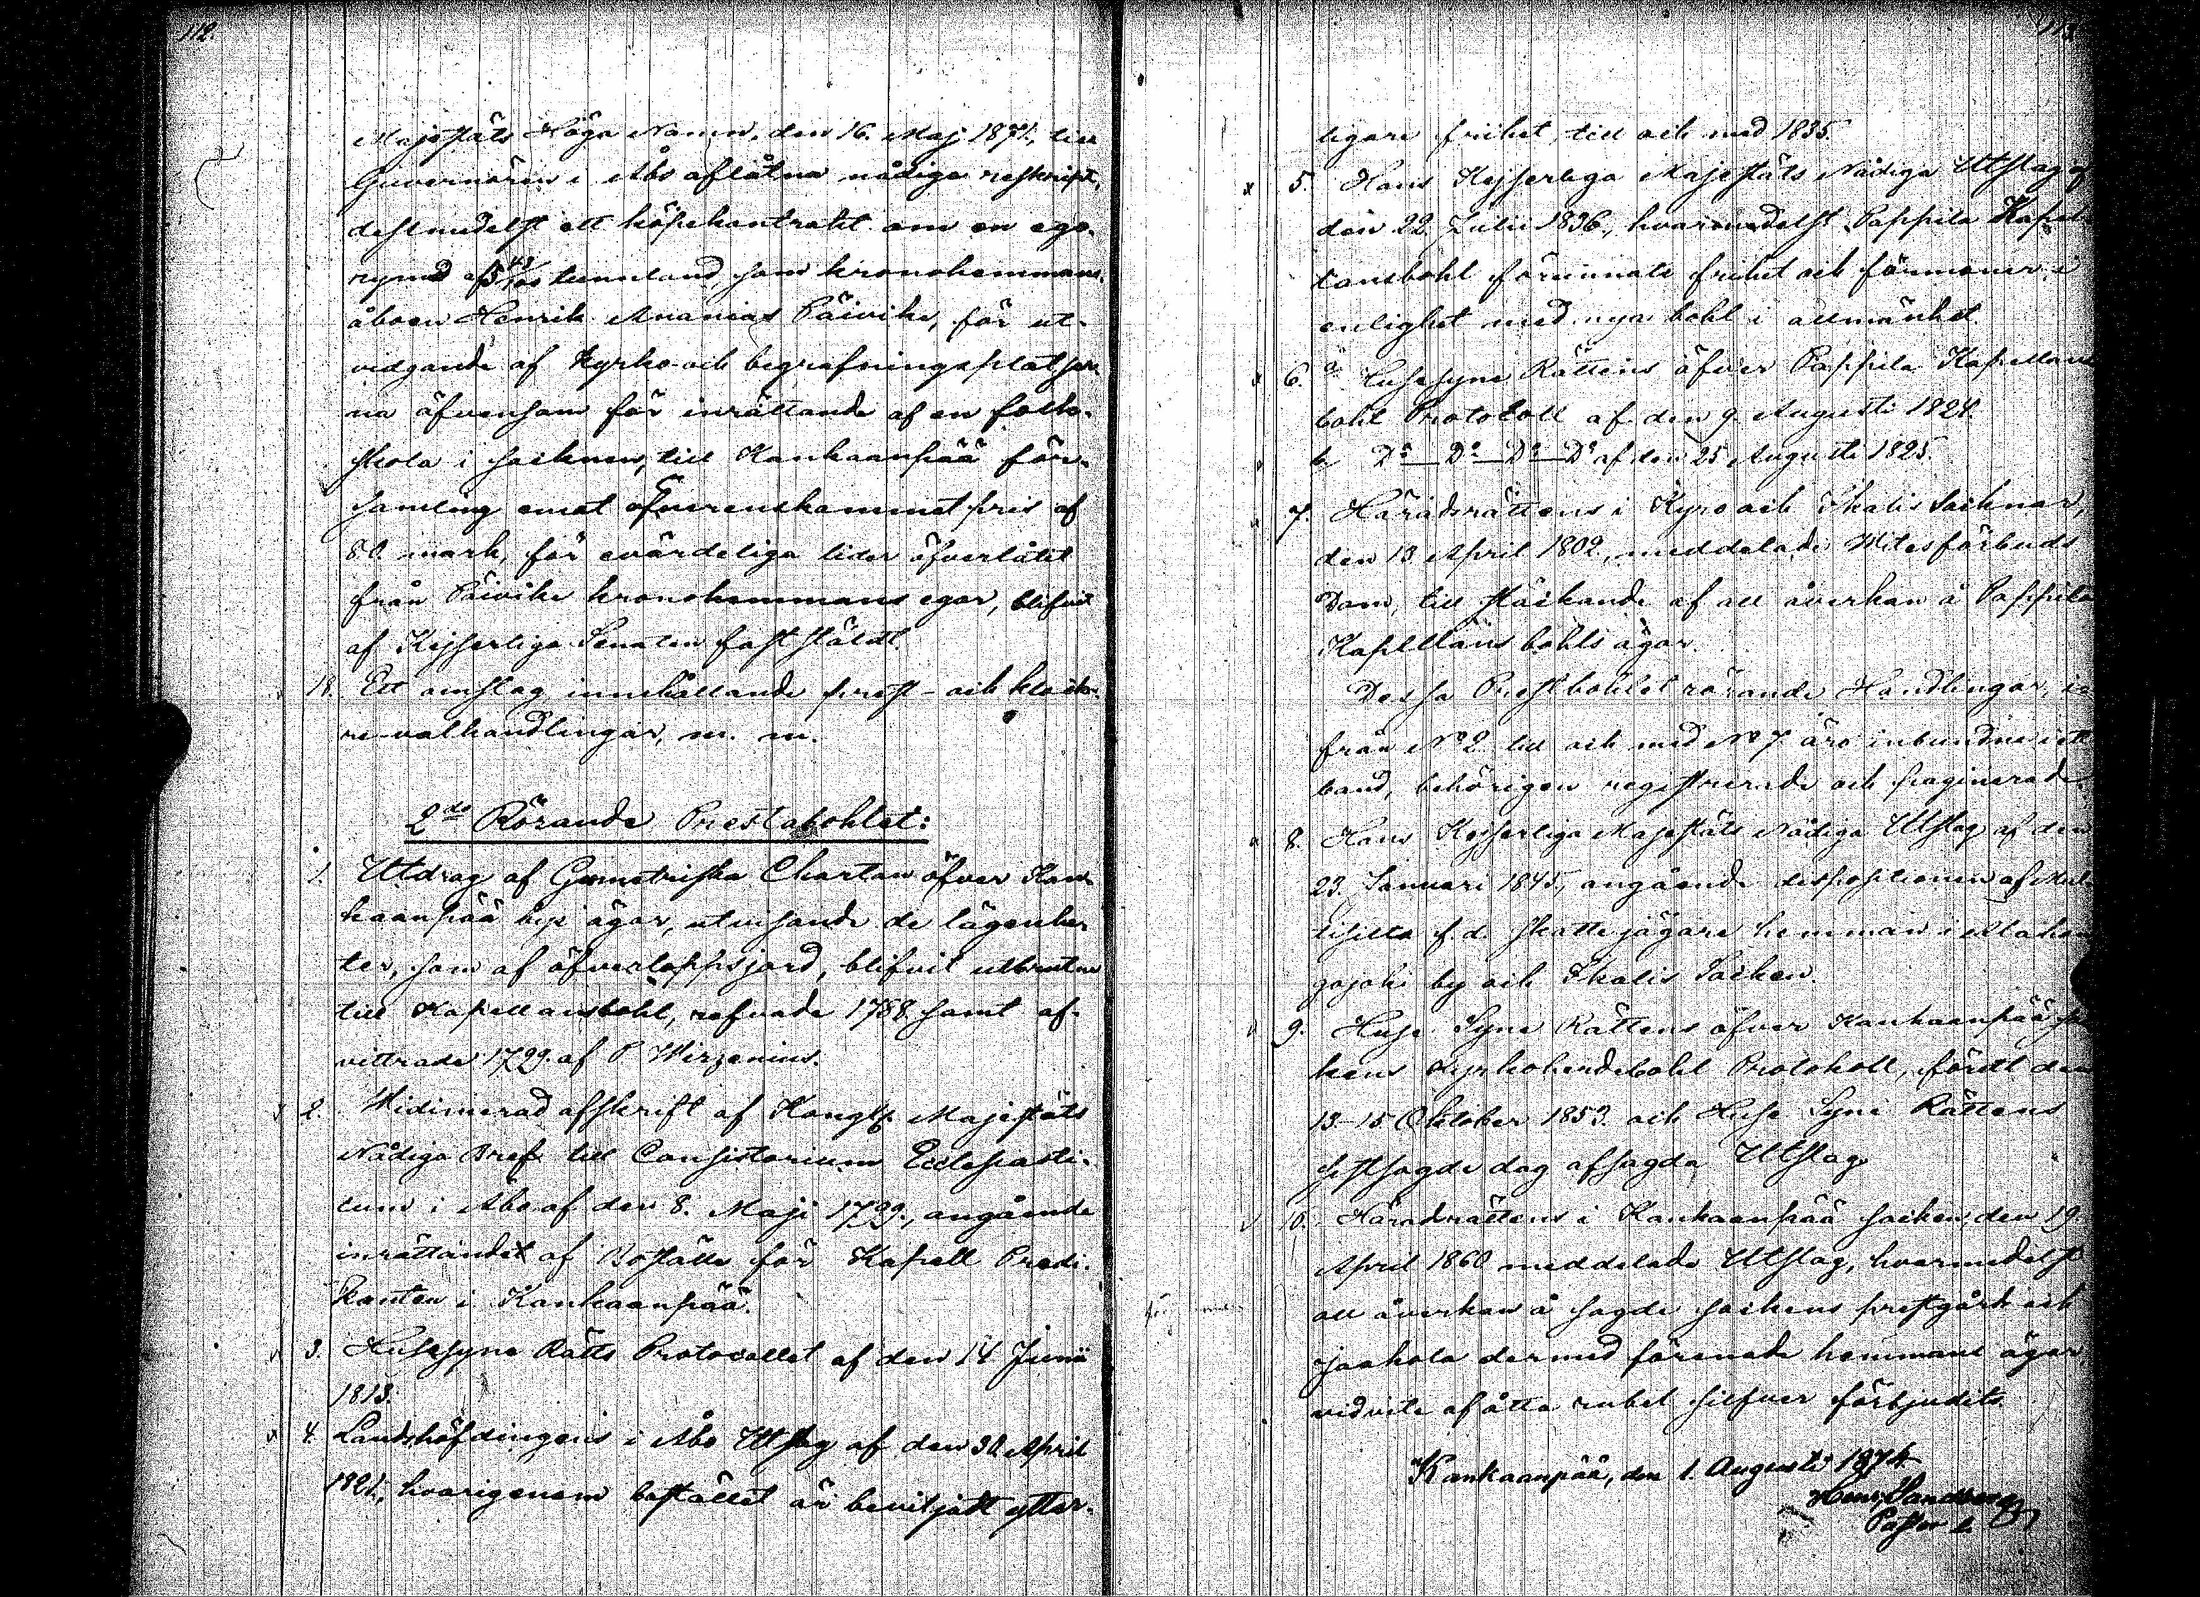 112.
Majestäts Höga Namn, den 16. Maj 1871, till
Guvernören i Åbo aflåtna nådiga reskript,
destmedelst ett köpekontrakt om en ego-
rymd af 43/100 tunnland, som kronohemmans
åboen Henrik Ananias Päivike, för ut-
vidgande af kyrko- och begrafningsplatser-
na äfvensom för inrättande af en folk-
skola i socknen, till Kankaanpää för-
samling emot öfverenskommet pris af
80 mark, för evärdeliga tider öfverlåtit
från Päivike kronohemmans egor, blifvit
af Kejserliga Senaten fastställdt.
18. Ett omslag innehållande prest- och klocka-
re-valhandlingar, m. m.
2do Rörande Prestabohlet:
1. Utdrag af Geometriska Chartan öfver Kan-
kaanpää bys ägor, utvisande de lägenhe-
ter, som af öfverloppsjord, blifvit utbrutne
till Kapellansbohl, refvade 1788 samt af-
vittrade 1799 af P Wirzenius.
2. Widimerad afskrift af Kongl. Majestäts
Nådiga Bref till Consistorium Ecclesiasti-
cum i Åbo af den 8. Maji 1799, angående
inrättandet af Boställe för Kapell Predi-
kanten i Kankaanpää.
3. Husesyns Rätts Protocollet af den 14 Junii
1813.
4. Landshöfdingens i Åbo Utslag af den 30 April
1821, hvarigenom bostället är beviljadt ytter-
113.
ligare frihet, till och med 1835.
5. Hans Kejserliga Majestäts Nådiga Utslag af
den 22 Julii 1836, hvarmedelst Pappila Kapel-
lansbohl förunnats frihet och förmoner i
enlighet med nya bohl i allmänhet.
6. a Husesyns Rättens öfver Pappila Kapellans
bohl Protokoll af den 9 Augusti 1824.
b. Do Do Do Do af den 25 Augusti 1825.
7. Häradsrättens i Kyro och Ikalis Socknar,
den 13 April 1802, meddelade Witesförbuds
Dom, till stäckande af all åverkan å Pappila
Kapellans bohls ägor.
Dessa Prestbohlet rörande Handlingar,
från No 2 till och med No 7 äro inbundne i ett
band, behörigen registrerade och paginerade.
8. Hans Kejserliga Majestäts Nådiga Utslag af den
23. Januari 1845, angående dispositionen af
f. d. Skattejägare hemman i
by och Ikalis Socken.
9. Huse Syns Rättens öfver Kankaanpää soc-
kens Kyrkoherdebohl Protokoll, fördt den
13-15 Oktober 1853. och Huse Syns Rättens
sistsagde dag afsagda Utslag
10. Häradsrättens i Kankaanpää socken, den 19.
April 1860 meddelade Utslag, hvarmedelst
all åverkan å sagde sockens prestgårds och
Jaakola dermed förenade hemmans ägor
vid vite af åtta rubel silfver förbjudits.
Kankaanpää, den 1. Augusti 1874
Henr. Sandberg
Pastor l.